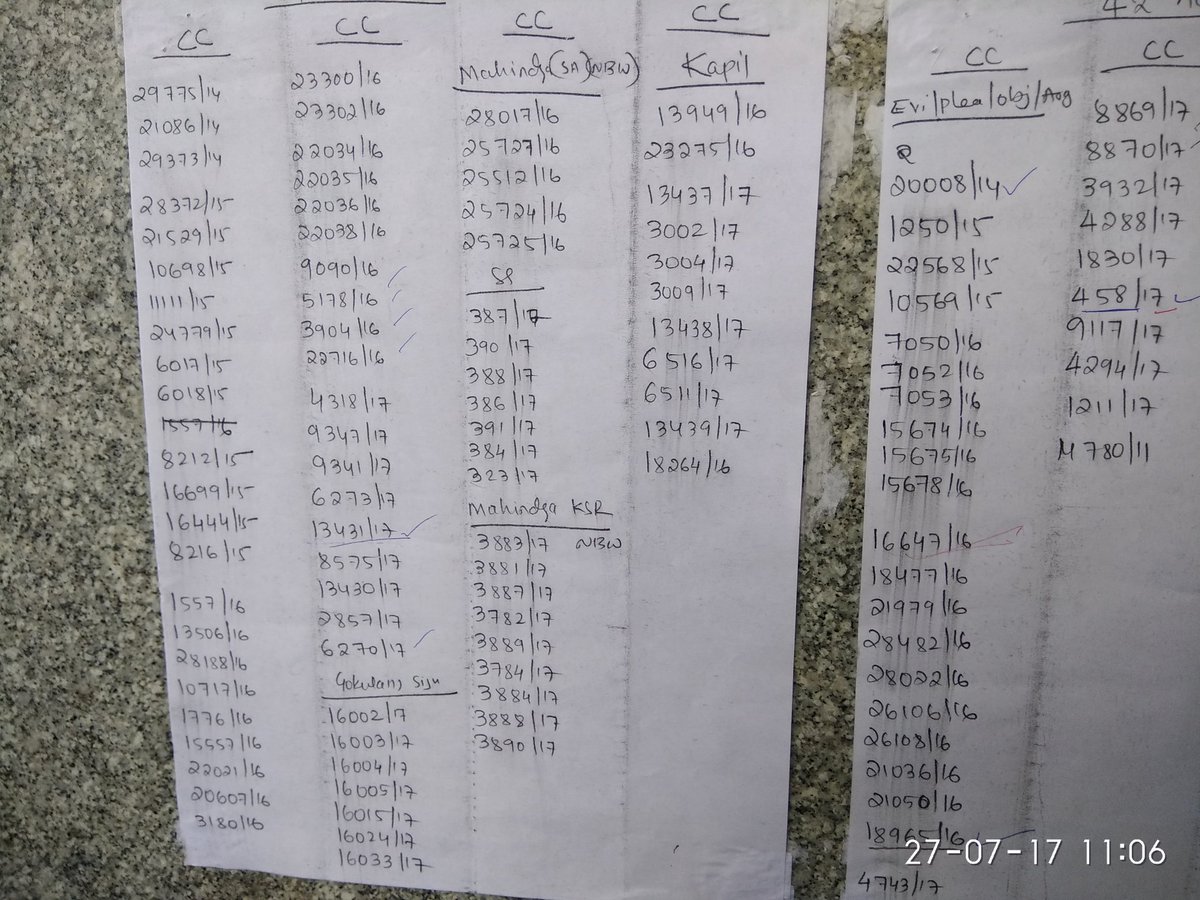 CC
29775/14
21086/14
29373/14
28372/15
21529/15
10698/15
11111/15
24779/15
6017/15
6018/15
1557/16
8212/15
16699/15
16444/15
8216/15
1557/16
13506/16
28188/16
10717/16
1776/16
15557/16
22021/16
20607/16
3180/16
CC
23300/16
23302/16
22034/16
22035/16
22036/16
22038/16
9090/16
5178/16
3904/16
22716/16
4318/17
9347/17
9341/17
6273/17
13431/17
8575/17
13430/17
2857/17
6270/17
16002/17
16003/17
16004/17
16005/17
16015/17
16024/17
16033/17
CC
Mahindra (SA) (NBW)
28017/16
25727/16
25512/16
25724/16
25725/16
387/17
390/17
388/17
386/17
391/17
384/17
323/17
Mahindra KSR
3883/17 NBW
3881/17
3887/17
3782/17
3889/17
3784/17
3884/17
3888/17
3890/17
CC
Kapil
13949/16
23275/16
13437/17
3002/17
3004/17
3009/17
13438/17
6516/17
6511/17
13439/17
18264/16
CC
Evi/plea/obj/Arg
20008/14
1250/15
22568/15
10569/15
7050/16
7052/16
7053/16
15674/16
15675/16
15678/16
16647/16
18477/16
21979/16
28482/16
28022/16
26106/16
26108/16
21036/16
21050/16
18965/16
4743/17
42
CC
8869/17
8870/17
3932/17
4288/17
1830/17
458/17
9117/17
4294/17
1211/17
M 780/11
27-07-17 11:06